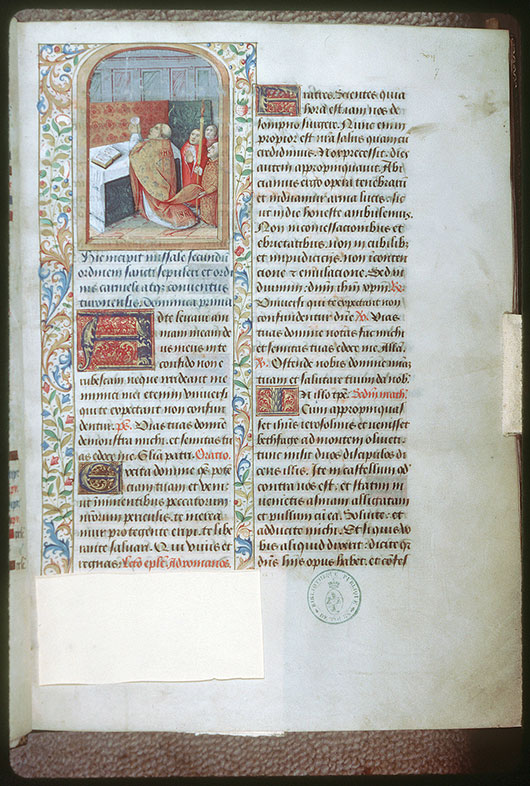 Hic incipit missale secundū
ordinem sancti sepulcri et ordi
nis carmeli atq; conventus
turonensis. Dominica prima
Ad te levavi ani
mam meam de
us meus in te
confido non e
rubescam neq; irrideant me
inimici mei etenim univerſi
qui te expectant non confun
dentur. pˢ. Vias tuas domīe
demonstra michi. et semitas tuas
edoce me. Gl̄ia patri. Oratio.
Excita domine qs̄ potē
tiam tuam et veni
ut imminentibus peccatorum
nr̄orum periculis. te merea
mur protegente eripi. te libe
rante salvari. Qui vivis et
regnas. Lectō epl̄e. ad romanos.
Fratres. Scientes quia
hora est iam nos de
sompno surgere. Nunc enim
propior est nr̄a salus quam cū
credidimus. Nox precessit. dies
autem appropinquavit. Abi
ciamus ergo opera tenebrarū
et induamur arma lucis. sic
ut in die honeste ambulemus.
Non in comessacionibus et
ebrietatibus. non in cubilib;
et impudiciciis. non in conten
cione et emulacione. Sed in
duimini. dn̄m ih̄m xp̄m. R.
Universi qui te expectant non
confundentur dn̄e. V. Vias
tuas domine notas fac michi
et semitas tuas edoce me. Alla.
V. Ostende nobis domine mīam
tuam et salutare tuum da nob̄.
In illo tp̄e. Sedm̄ math.
Cum appropinquas
set ih̄us ierosolimis et venisset
bethfage ad montem oliveti.
tunc misit duos discipulos di
cens illis. Ite in castellum qd̄
contra vos est. et statim in
venietis asinam alligatam
et pullum cū ea. Solvite. et
adducite michi. Et si quis vo
bis aliquid dixerit. dicite q̄
dn̄s hiis opus habet. et confes
BIBLIOTHÈQUE PUBLIQUE